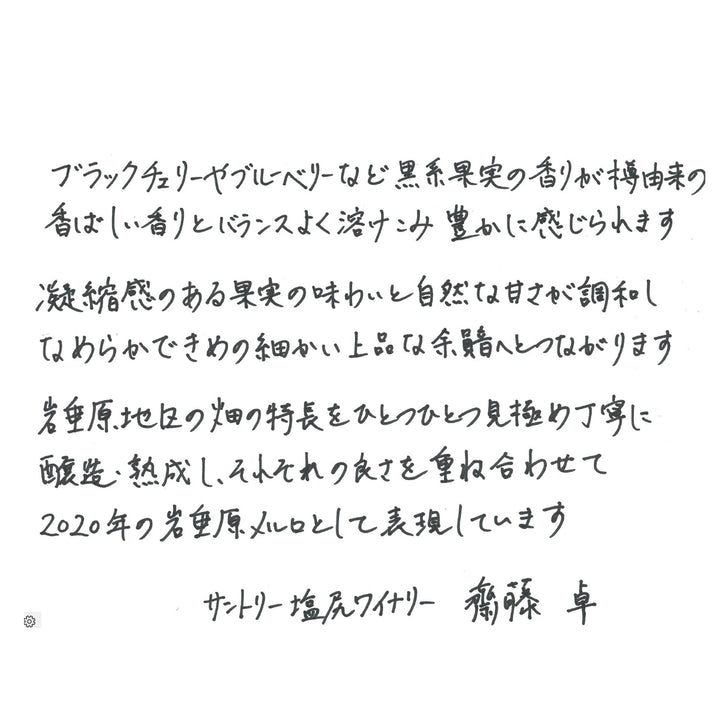 ブラックチェリーやブルーベリーなど黒系果実の香りが樽由来の
香ばしい香りとバランスよく溶けこみ 豊かに感じられます
凝縮感のある果実の味わいと自然な甘さが調和し
なめらかできめの細かい上品な余韻へとつながります
岩垂原地区の畑の特長をひとつひとつ見極め丁寧に
醸造・熟成し、それぞれの良さを重ね合わせて
2020年の岩垂原メルロとして表現しています
サントリー塩尻ワイナリー 齋藤 卓